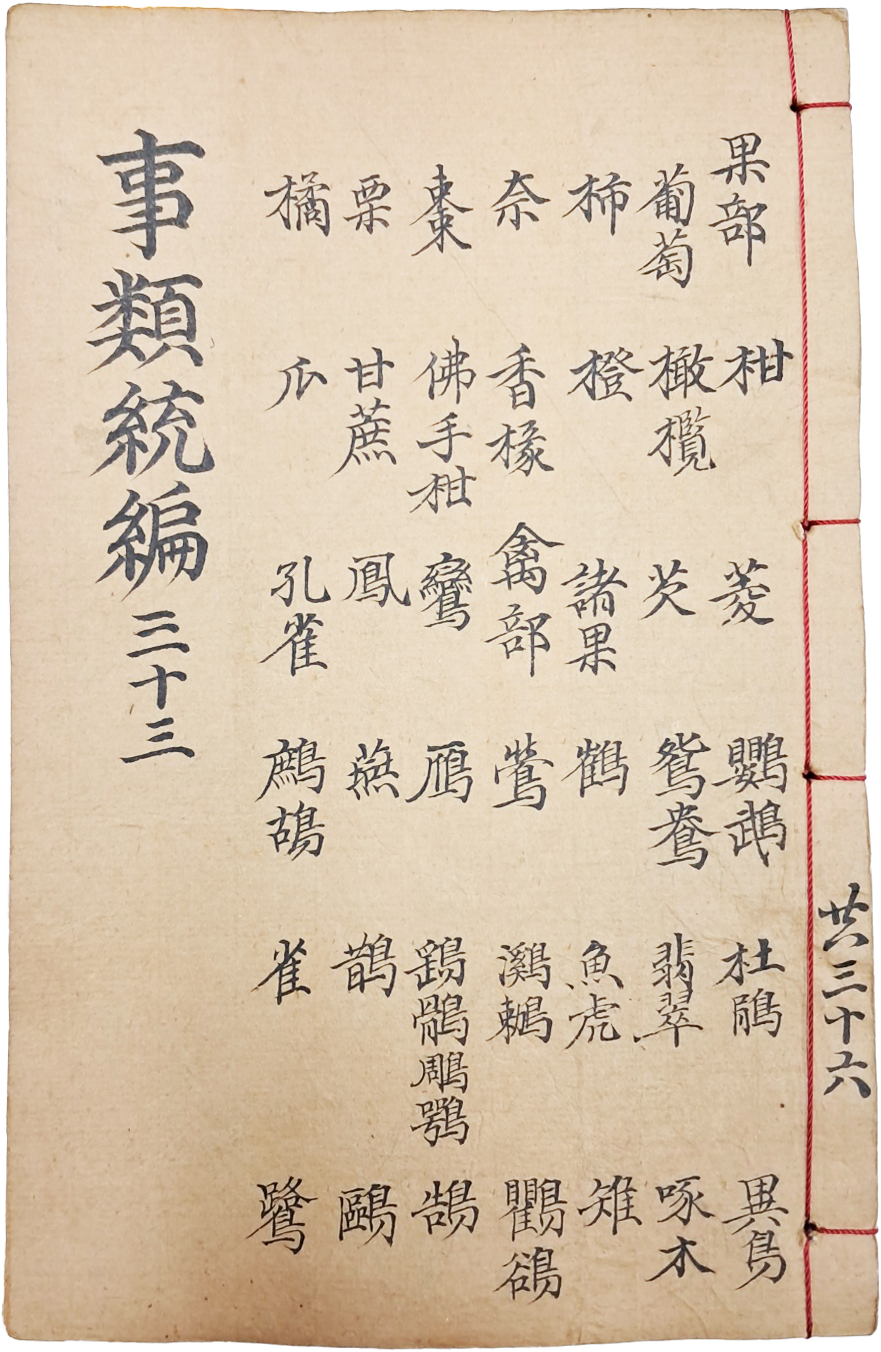 共三十六
果部 柑 菱 鸚鵡 杜鵑 異鳥
葡萄 橄欖 芡 鴛鴦 翡翠 啄木
柿 橙 諸果 鶴 魚虎 雉
奈 香橼 禽部 鶯 鸂鶒 鸜鵒
棗 佛手柑 鸞 鴈 鷂鶻鵰鶚 鵠
栗 甘蔗 鳳 燕 鵲 鷗
橘 瓜 孔雀 鷓鴣 雀 鷺
事類統編 三十三